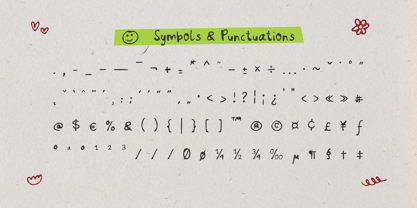 Symbols & Punctuations
. , - _ – — ¯ ¬ + = * ^ ~ − ± × ÷ … · ~ ˇ ˙ ° "
, : ; ' ' " " ‚ „ ‹ › ! ? | ¡ ¿ ' " < > « » #
@ $ € % & ( ) { | } [ ] ™ ® © ¤ ¢ £ ¥ ƒ
º ª ⁰ ¹ ² ³ / / / 0 ø ¼ ½ ¾ ‰ µ ¶ § † ‡